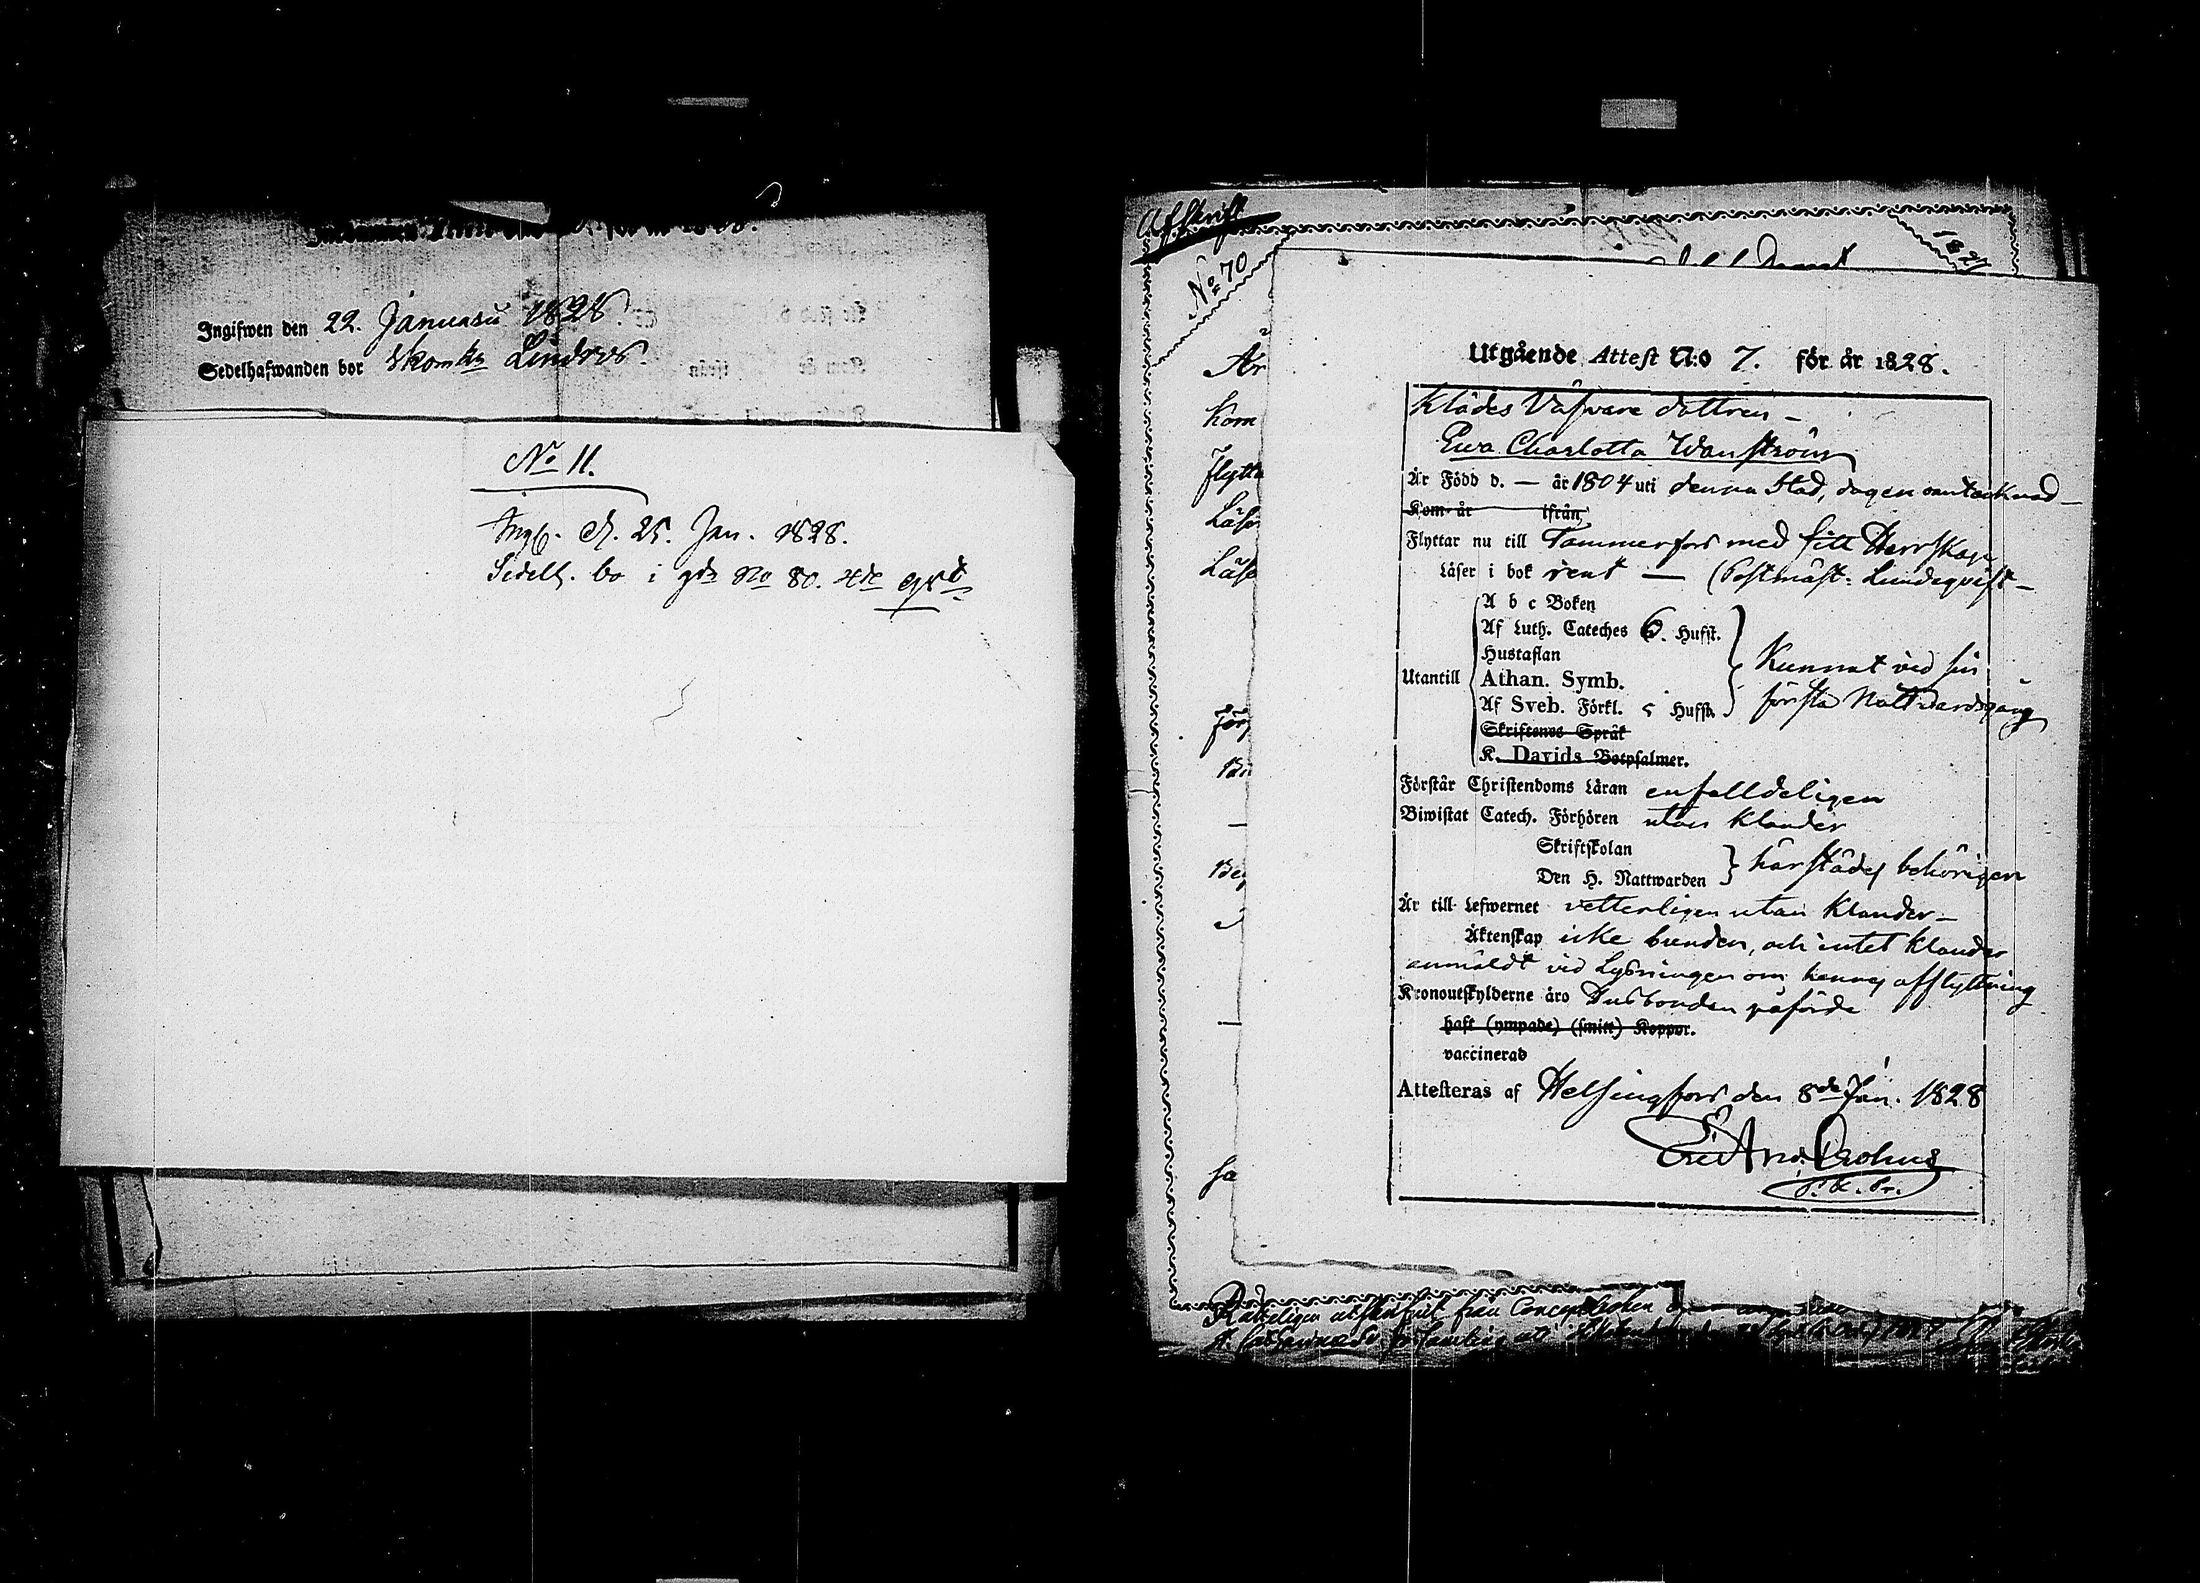 Ingifwen den 22. Januarii 1828.
Sedelhafwanden bor
No 11.
Ingb. d. 25. Jan. 1828.
Sedelh. bo i gdn No 80. 4de qrt
Afskrift
No 70
1827
Är
Kom
Flytta
Läse
Läse
För
Be
sa
Utgående Attest N:o 7. för år 1828.
Klädes Väfvare dottren –
Ewa Charlotta Wanström
Är Född d. — år 1804 uti denna Stad, dagen oantecknad –
Kom år ifrån
Flyttar nu till Tammerfors med sitt Herrskap
Läser i bok rent — (Postmäst: Lundeqvist –
A b c Boken
Af Luth. Cateches 6. Hufst.
Hustaflan
Utantill Athan. Symb.
Kunnat vid sin
Af Sveb. Förkl. 5 Hufst.
första Nattvardsgång
Skriftenes Språk
K. Davids Botpsalmer.
Förstår Christendoms Läran enfalldeligen
Biwistat Catech. Förhören utan klander
Skriftskolan
Den H. Nattwarden härstädes behörigen
Är till Lefwernet vetterligen utan klander –
Äktenskap icke bunden, och intet klander
anmäldt vid Lysningen om hennes afflyttning
Kronoutskylderne äro Husbonden påförde
haft (ympade) (smitt) Koppor.
vaccinerad
Attesteras af Helsingfors den 8de Jan. 1828
Rätteligen afskrifvit från Conceptboken